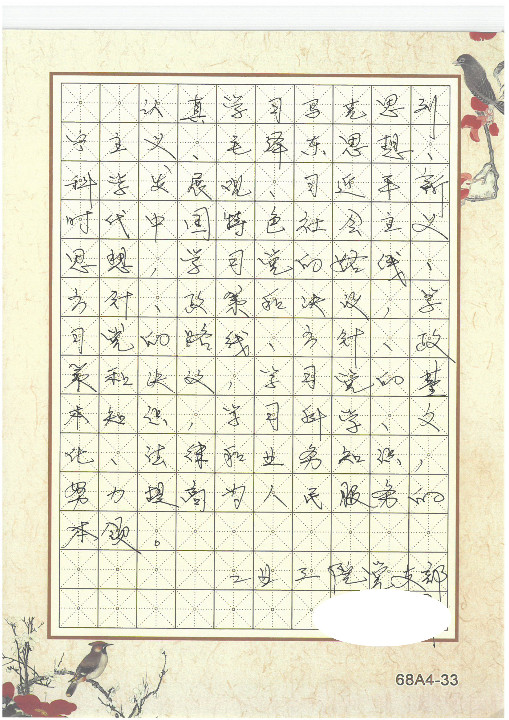 认真学习马克思列
宁主义、毛泽东思想、
科学发展观、习近平新
时代中国特色社会主义
思想，学习党的路线、
方针、政策和决议，学
习党的路线、方针、政
策和决议，学习党的基
本知识，学习科学、文
化、法律和业务知识，
努力提高为人民服务的
本领。
工业工院党支部
68A4-33